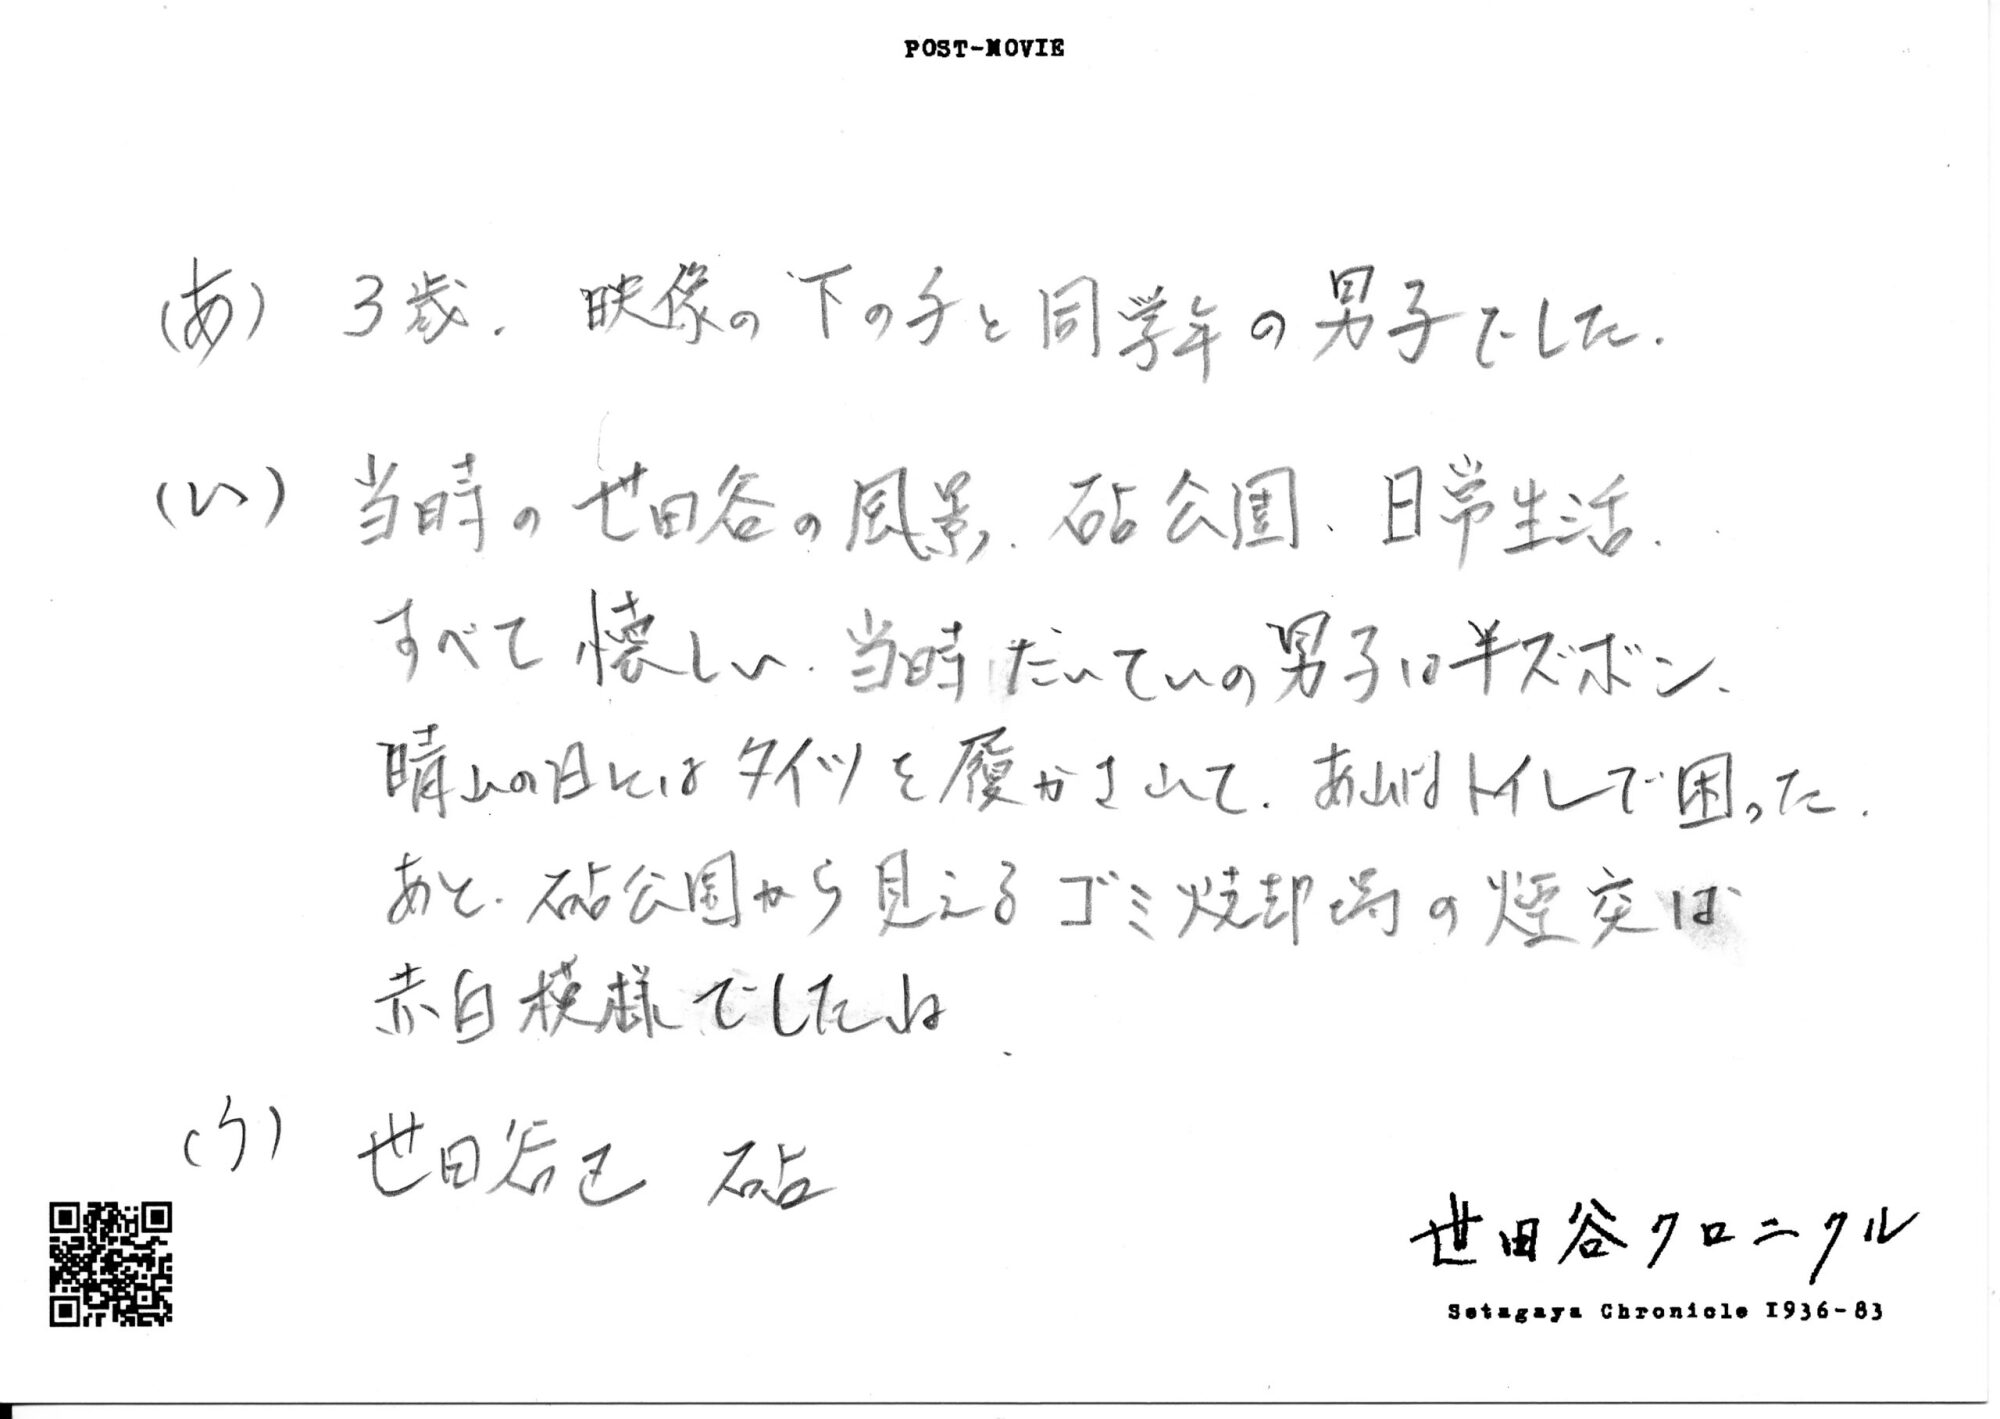 POST-MOVIE
(あ) 3歳. 映像の下の子と同学年の男子でした.
(い) 当時の世田谷の風景. 砧公園、日常生活.
すべて懐しい. 当時だいていの男子は半ズボン、
晴れの日にはタイツを履かされて. あれはトイレで困った.
あと、砧公園から見えるゴミ焼却場の煙突は
赤白模様でしたね.
(う) 世田谷区 砧
世田谷クロニクル
Setagaya Chronicle 1936-83